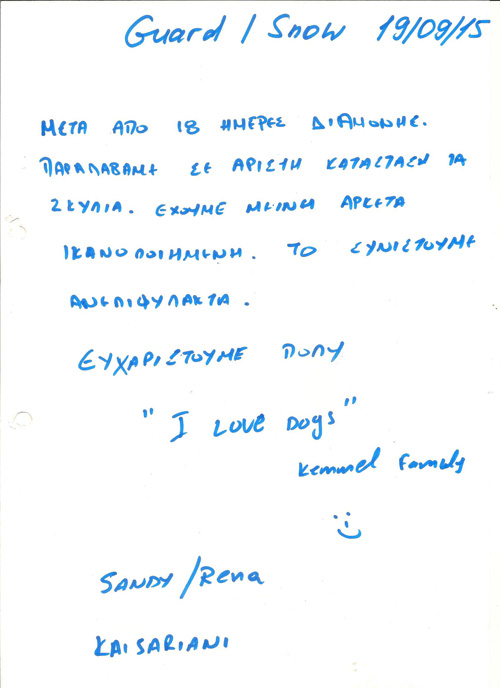 Guard / Snow 19/09/15
ΜΕΤΑ ΑΠΟ 18 ΗΜΕΡΕΣ ΔΙΑΜΟΝΗΣ.
ΠΑΡΑΛΑΒΑΜΕ ΣΕ ΑΡΙΣΤΗ ΚΑΤΑΣΤΑΣΗ ΤΑ
ΣΚΥΛΙΑ. ΕΧΟΥΜΕ ΜΕΙΝΗ ΑΡΚΕΤΑ
ΙΚΑΝΟΠΟΙΗΜΕΝΗ. ΤΟ ΣΥΝΙΣΤΟΥΜΕ
ΑΝΕΠΙΦΥΛΑΚΤΑ.
ΕΥΧΑΡΙΣΤΟΥΜΕ ΠΟΛΥ
"I LOVE DOgS"
Kemmel Family
SANDY/Rena
KAISARIANI